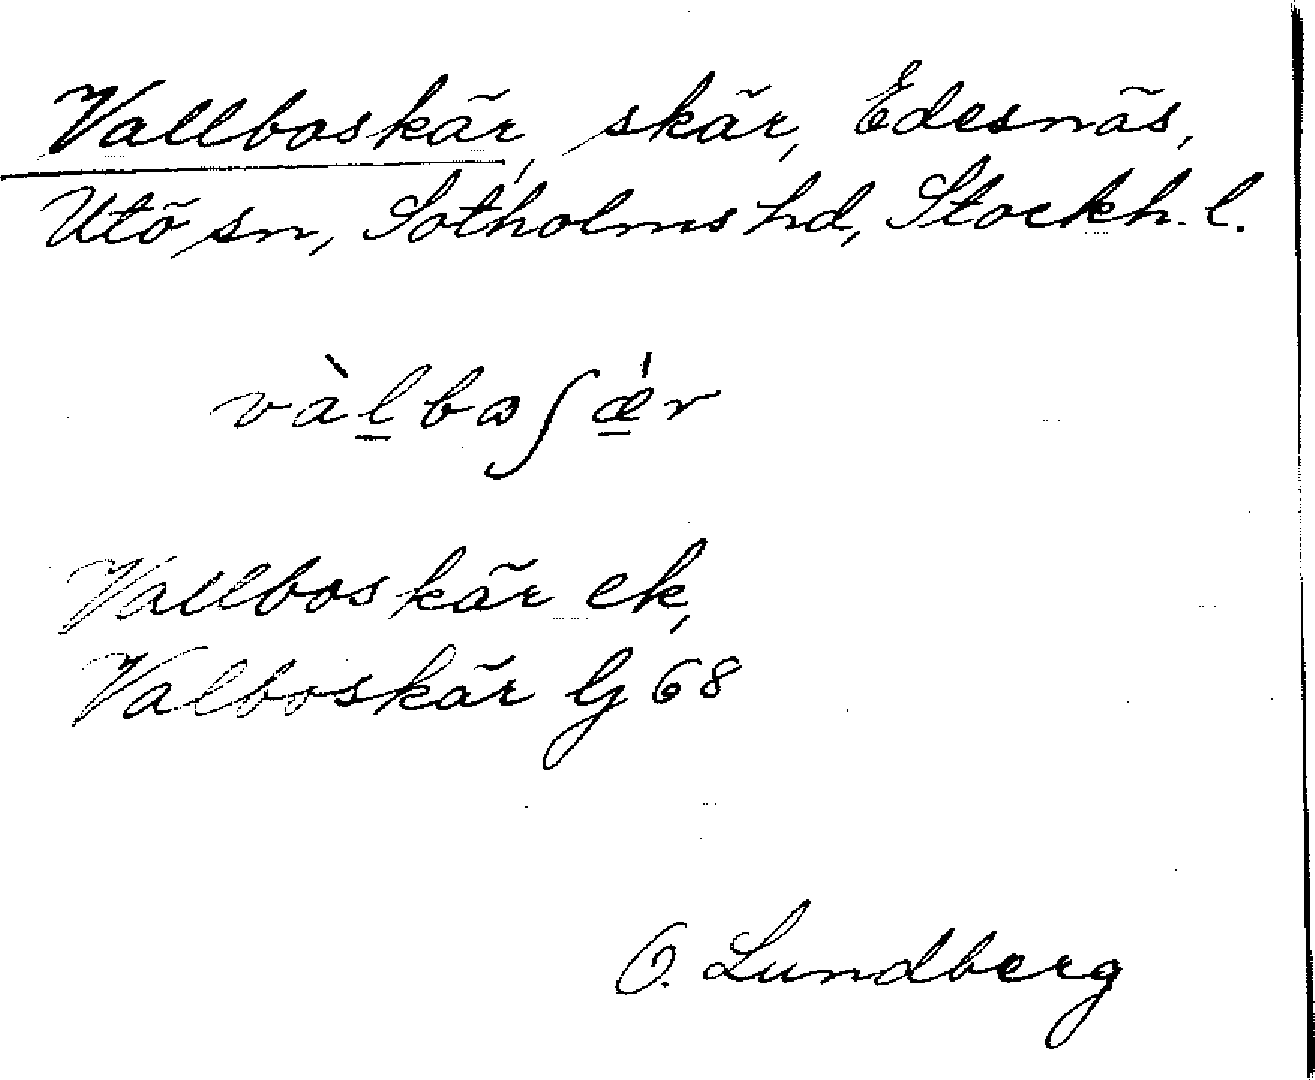 Vallboskär, skär, Edesnäs,
Utö sn, Sotholms hd, Stockh. l.
vàḻbaʃǽ̱r
Vallboskär ek,
Valboskär G 68
O. Lundberg